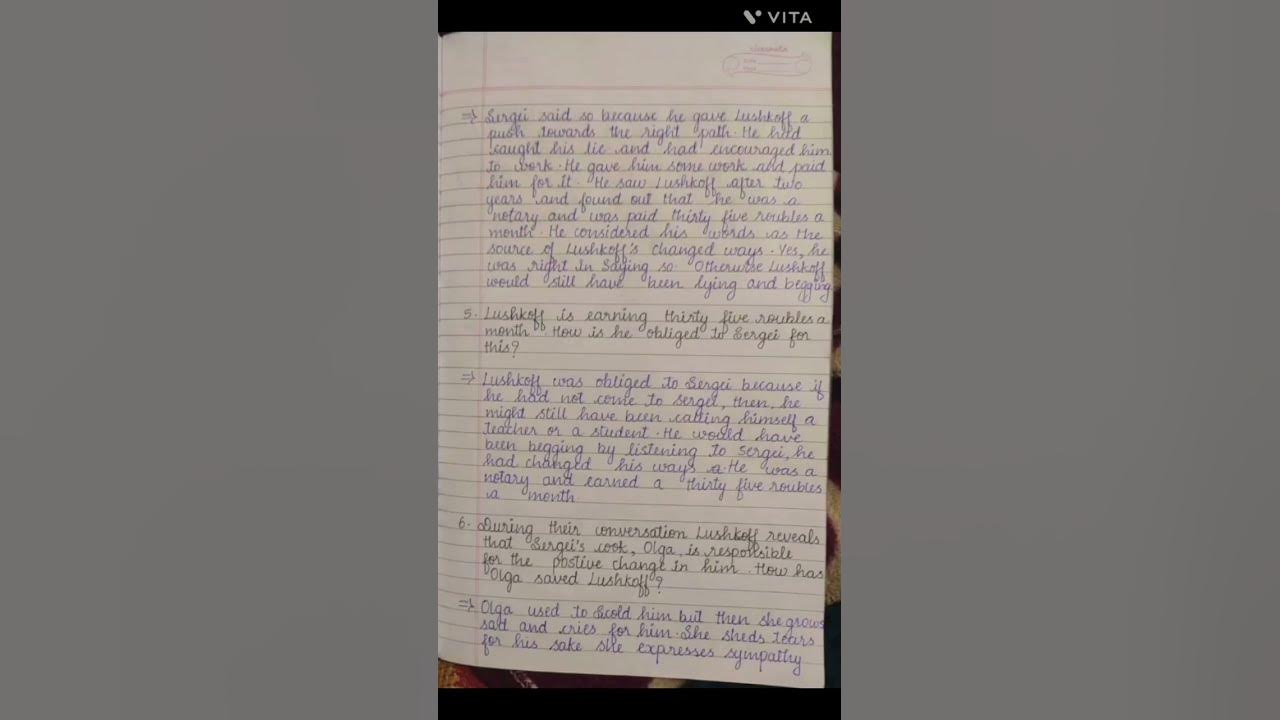 VITA
classmate
Date
Page
⇒ Sergei said so because he gave Lushkoff a
push towards the right path. He had
caught his lie and had encouraged him
to work. He gave him some work and paid
him for it. He saw Lushkoff after two
years and found out that he was a
notary and was paid thirty five roubles a
month. He considered his words as the
source of Lushkoff's changed ways. Yes, he
was right In Saying so. Otherwise Lushkoff
would still have been lying and begging
5. Lushkoff is earning thirty five roubles a
month. How is he obliged to Sergei for
this?
⇒ Lushkoff was obliged to Sergei because if
he had not come to sergei, then, he
might still have been calling himself a
teacher or a student. He would have
been begging by listening to Sergei, he
had changed his ways a. He was a
notary and earned a thirty five roubles
a month.
6. During their conversation Lushkoff reveals
that Sergei's cook, Olga, is responsible
for the postive change in him. How has
Olga saved Lushkoff?
⇒ Olga used to Scold him but then she grows
sad and cries for him. She sheds tears
for his sake she expresses sympathy